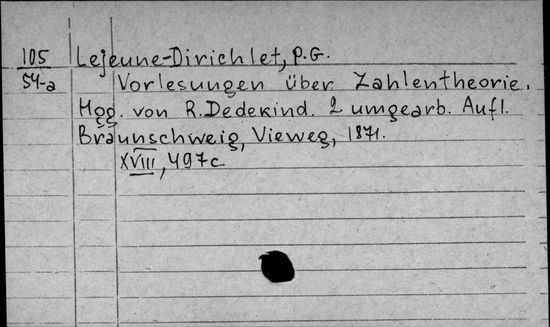 105 Lejeune-Dirichlet, P.G.
54-a Vorlesungen über Zahlentheorie.
Hgg. von R. Dedekind. 2 umgearb. Aufl.
Braunschweig, Vieweg, 1871.
XVIII, 497 c.